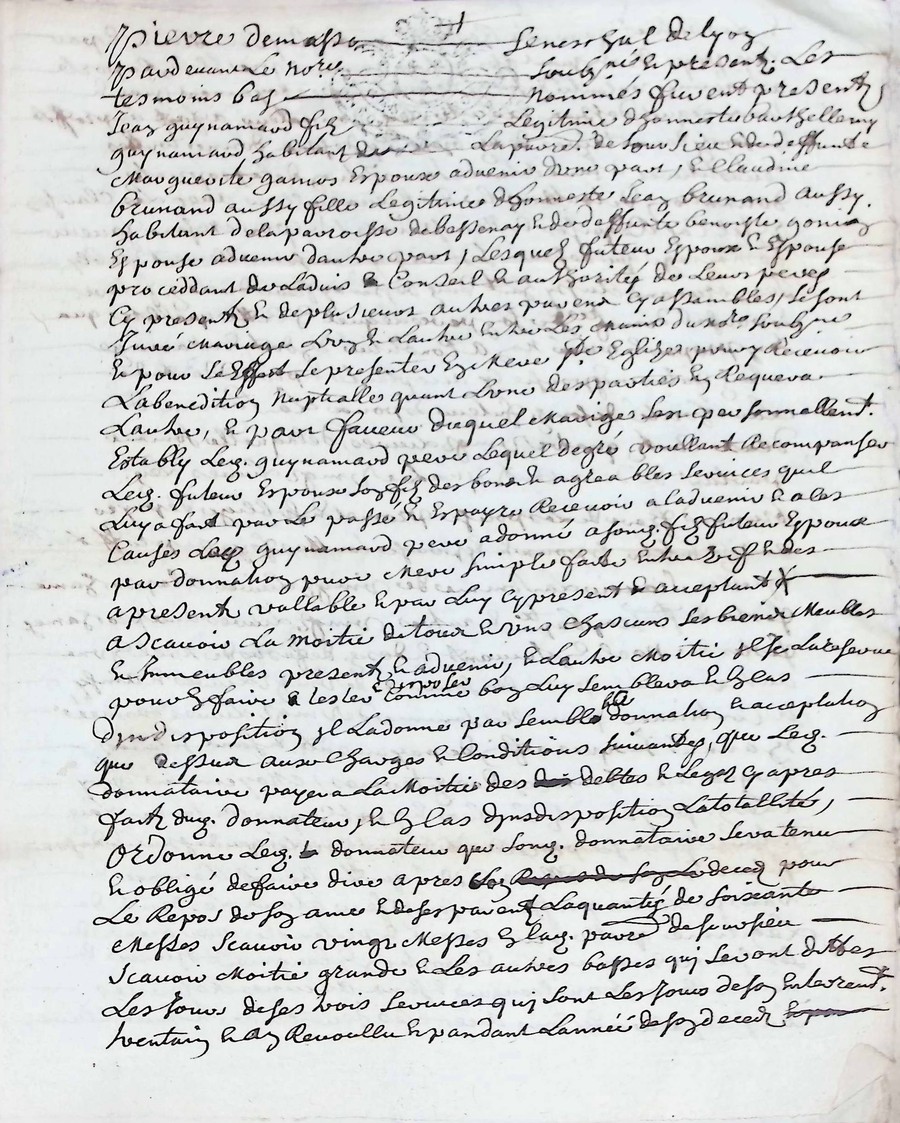 Pierre demasso Seneschal de lyon
Pardevant Le nore soubzné & present. Les
tesmoins bas nommés furent presentz
Jean guynamard filz Legitime dhonneste barthellemy
guynamard habitant de La parre. de sourcieu & de deffuncte
Marguerite gamos Espoux advenir dune part, & Claudine
brunand aussy fille Legitime dhonneste Jean brunand aussy
habitant de la parroisse de bessenay & de deffunte benoiste gonin
Espouse advenir dautre part, Lesquelz futeur Espoux & Espouse
proceddant de Ladvis & Conseil & authorités de Leurs peres
Cy presentz & de plusieurs autres parens Cy assamblés, se sont
Juré Mariage Lung & Lautre Entre Les mains du nore soubzné
& pour Le Effect se presenter En Mere ste Eglize pour y Recevoir
La benedition nuptialle quant Lune des parties En Requera
Lautre, & pour faveur duquel Mariage sest personnellent.
Estably Led. guynamard pere Lequel de gré voullant Recompanser
Led. futeur Espoux son filz des bons & agreables services quil
Luy a fait par Le passé & Espayre Recevoir a ladvenir & a ces
Causes Led. guynamard pere a donné a sond. filz futeur Espoux
par donnation pure Mere simple faite Entre vifz & des
a present vallable & par Luy Cy present & acceptant
a scavoir La moitié de tous & uns Chascuns ses biens Meubles
& Immeubles presentz & advenir, & Lautre Moitié Il se La reserve
pour En faire & disposer Comme bon Luy semblera & En Cas
dindisposition Il La donne par semblable donnation & acceptation
que dessus aux Charges & Conditions suivantes, que Led.
donnataire payera La Moitié des debtes & Legatz Cy apres
faitz dud. donnateur, & En Cas dindisposition La totallité,
Ordonne Led. donnateur que sond. donnataire sera tenu
& obligé de faire dire apres son deced pour
Le Repos de son ame & de ses parentz La quantité de soixante
Messes scavoir vingt Messes En lad. parre. de sourcieu
scavoir Moitié grande & Les autres basses qui seront dittes
Les Jour de ses trois services qui sont Les Jours de son Enterrent.
trentain & An Revollu & pandant Lannéé de son deced